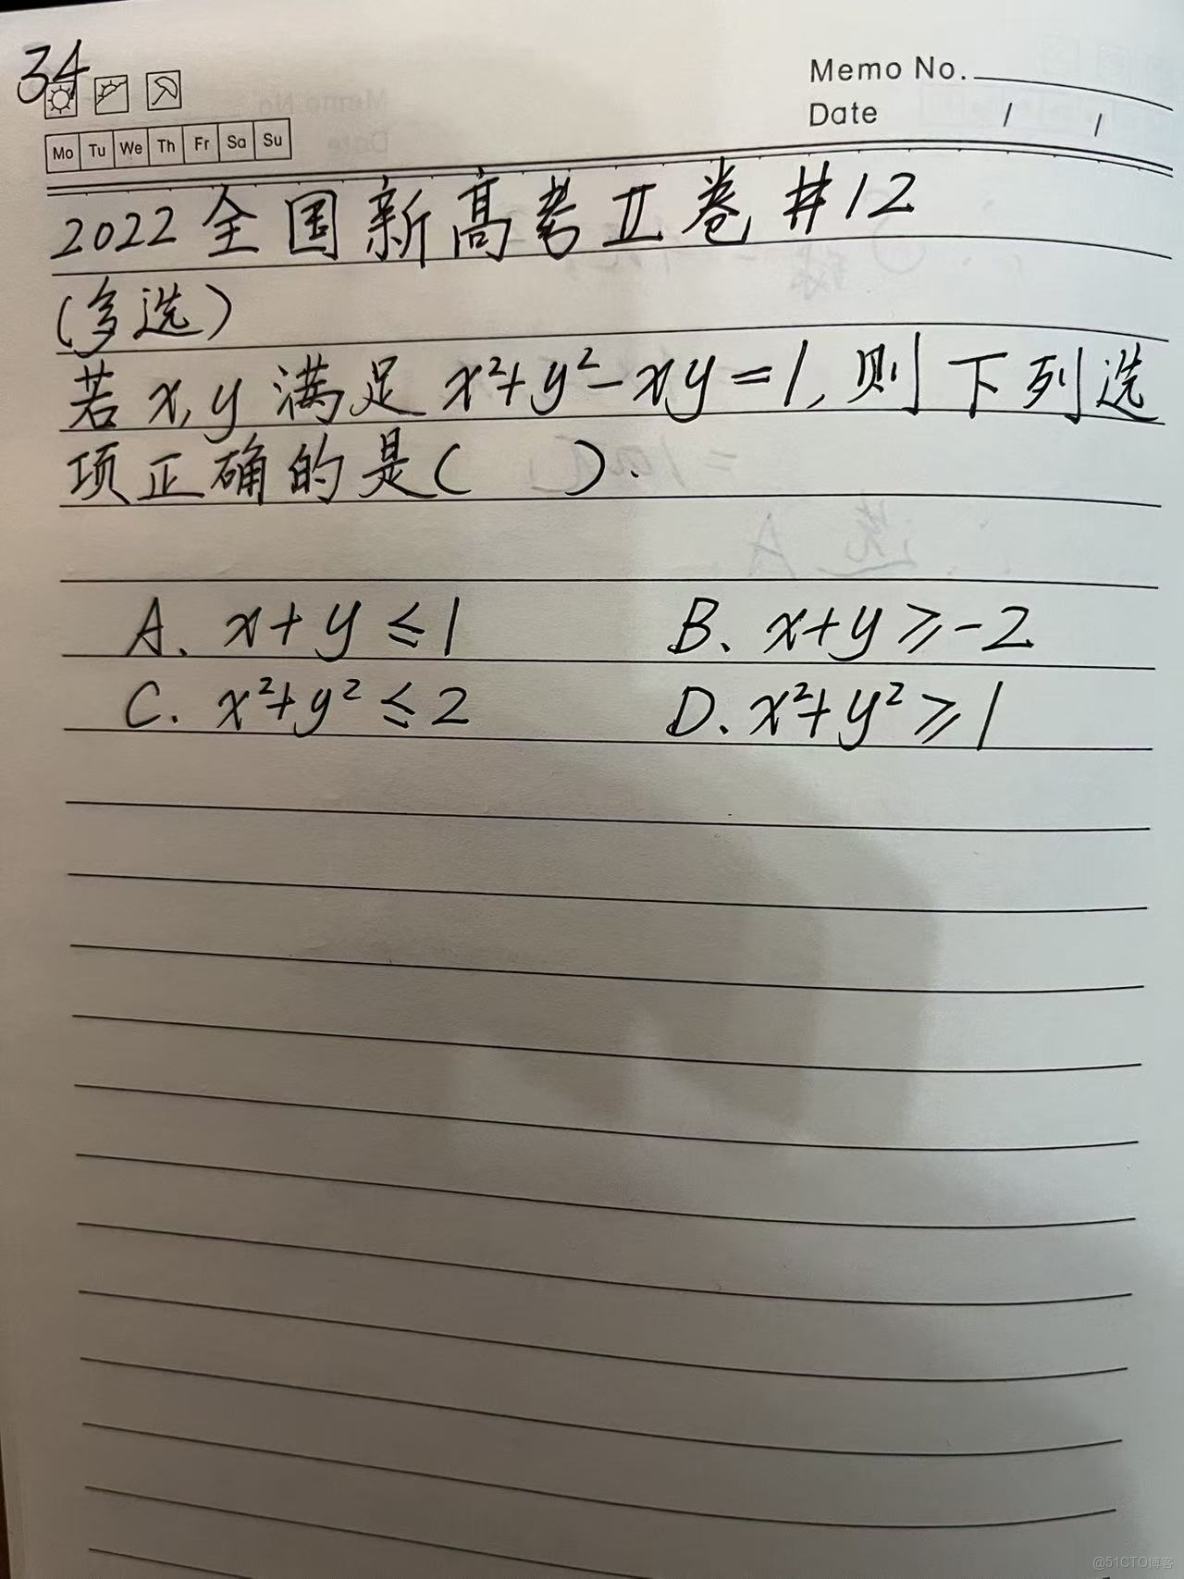 34
Memo No.
Date / /
Mo Tu We Th Fr Sa Su
2022全国新高考II卷#12
(多选)
若x,y满足x²+y²-xy=1,则下列选
项正确的是( ).
A. x+y≤1 B. x+y≥-2
C. x²+y²≤2 D. x²+y²≥1
@51CTO博客